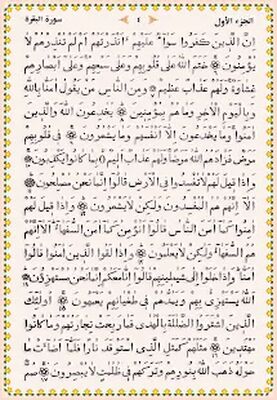 الجزء الأول ٤ سورة البقرة
إن الذين كفروا سواء عليهم ءأنذرتهم أم لم تنذرهم لا
يؤمنون ۝ ختم الله على قلوبهم وعلى سمعهم وعلى أبصارهم
غشاوة ولهم عذاب عظيم ۝ ومن الناس من يقول آمنا بالله
وباليوم الآخر وما هم بمؤمنين ۝ يخدعون الله والذين
آمنوا وما يخدعون إلا أنفسهم وما يشعرون ۝ في قلوبهم
مرض فزادهم الله مرضا ولهم عذاب أليم بما كانوا يكذبون ۝
وإذا قيل لهم لا تفسدوا في الأرض قالوا إنما نحن مصلحون ۝
ألا إنهم هم المفسدون ولكن لا يشعرون ۝ وإذا قيل لهم
آمنوا كما آمن الناس قالوا أنؤمن كما آمن السفهاء ألا إنهم
هم السفهاء ولكن لا يعلمون ۝ وإذا لقوا الذين آمنوا قالوا
آمنا وإذا خلوا إلى شيطينهم قالوا إنا معكم إنما نحن مستهزءون ۝
الله يستهزئ بهم ويمدهم في طغيانهم يعمهون ۝ أولئك
الذين اشتروا الضللة بالهدى فما ربحت تجارتهم وما كانوا
مهتدين ۝ مثلهم كمثل الذي استوقد نارا فلما أضاءت ما
حوله ذهب الله بنورهم وتركهم في ظلمت لا يبصرون ۝ صم